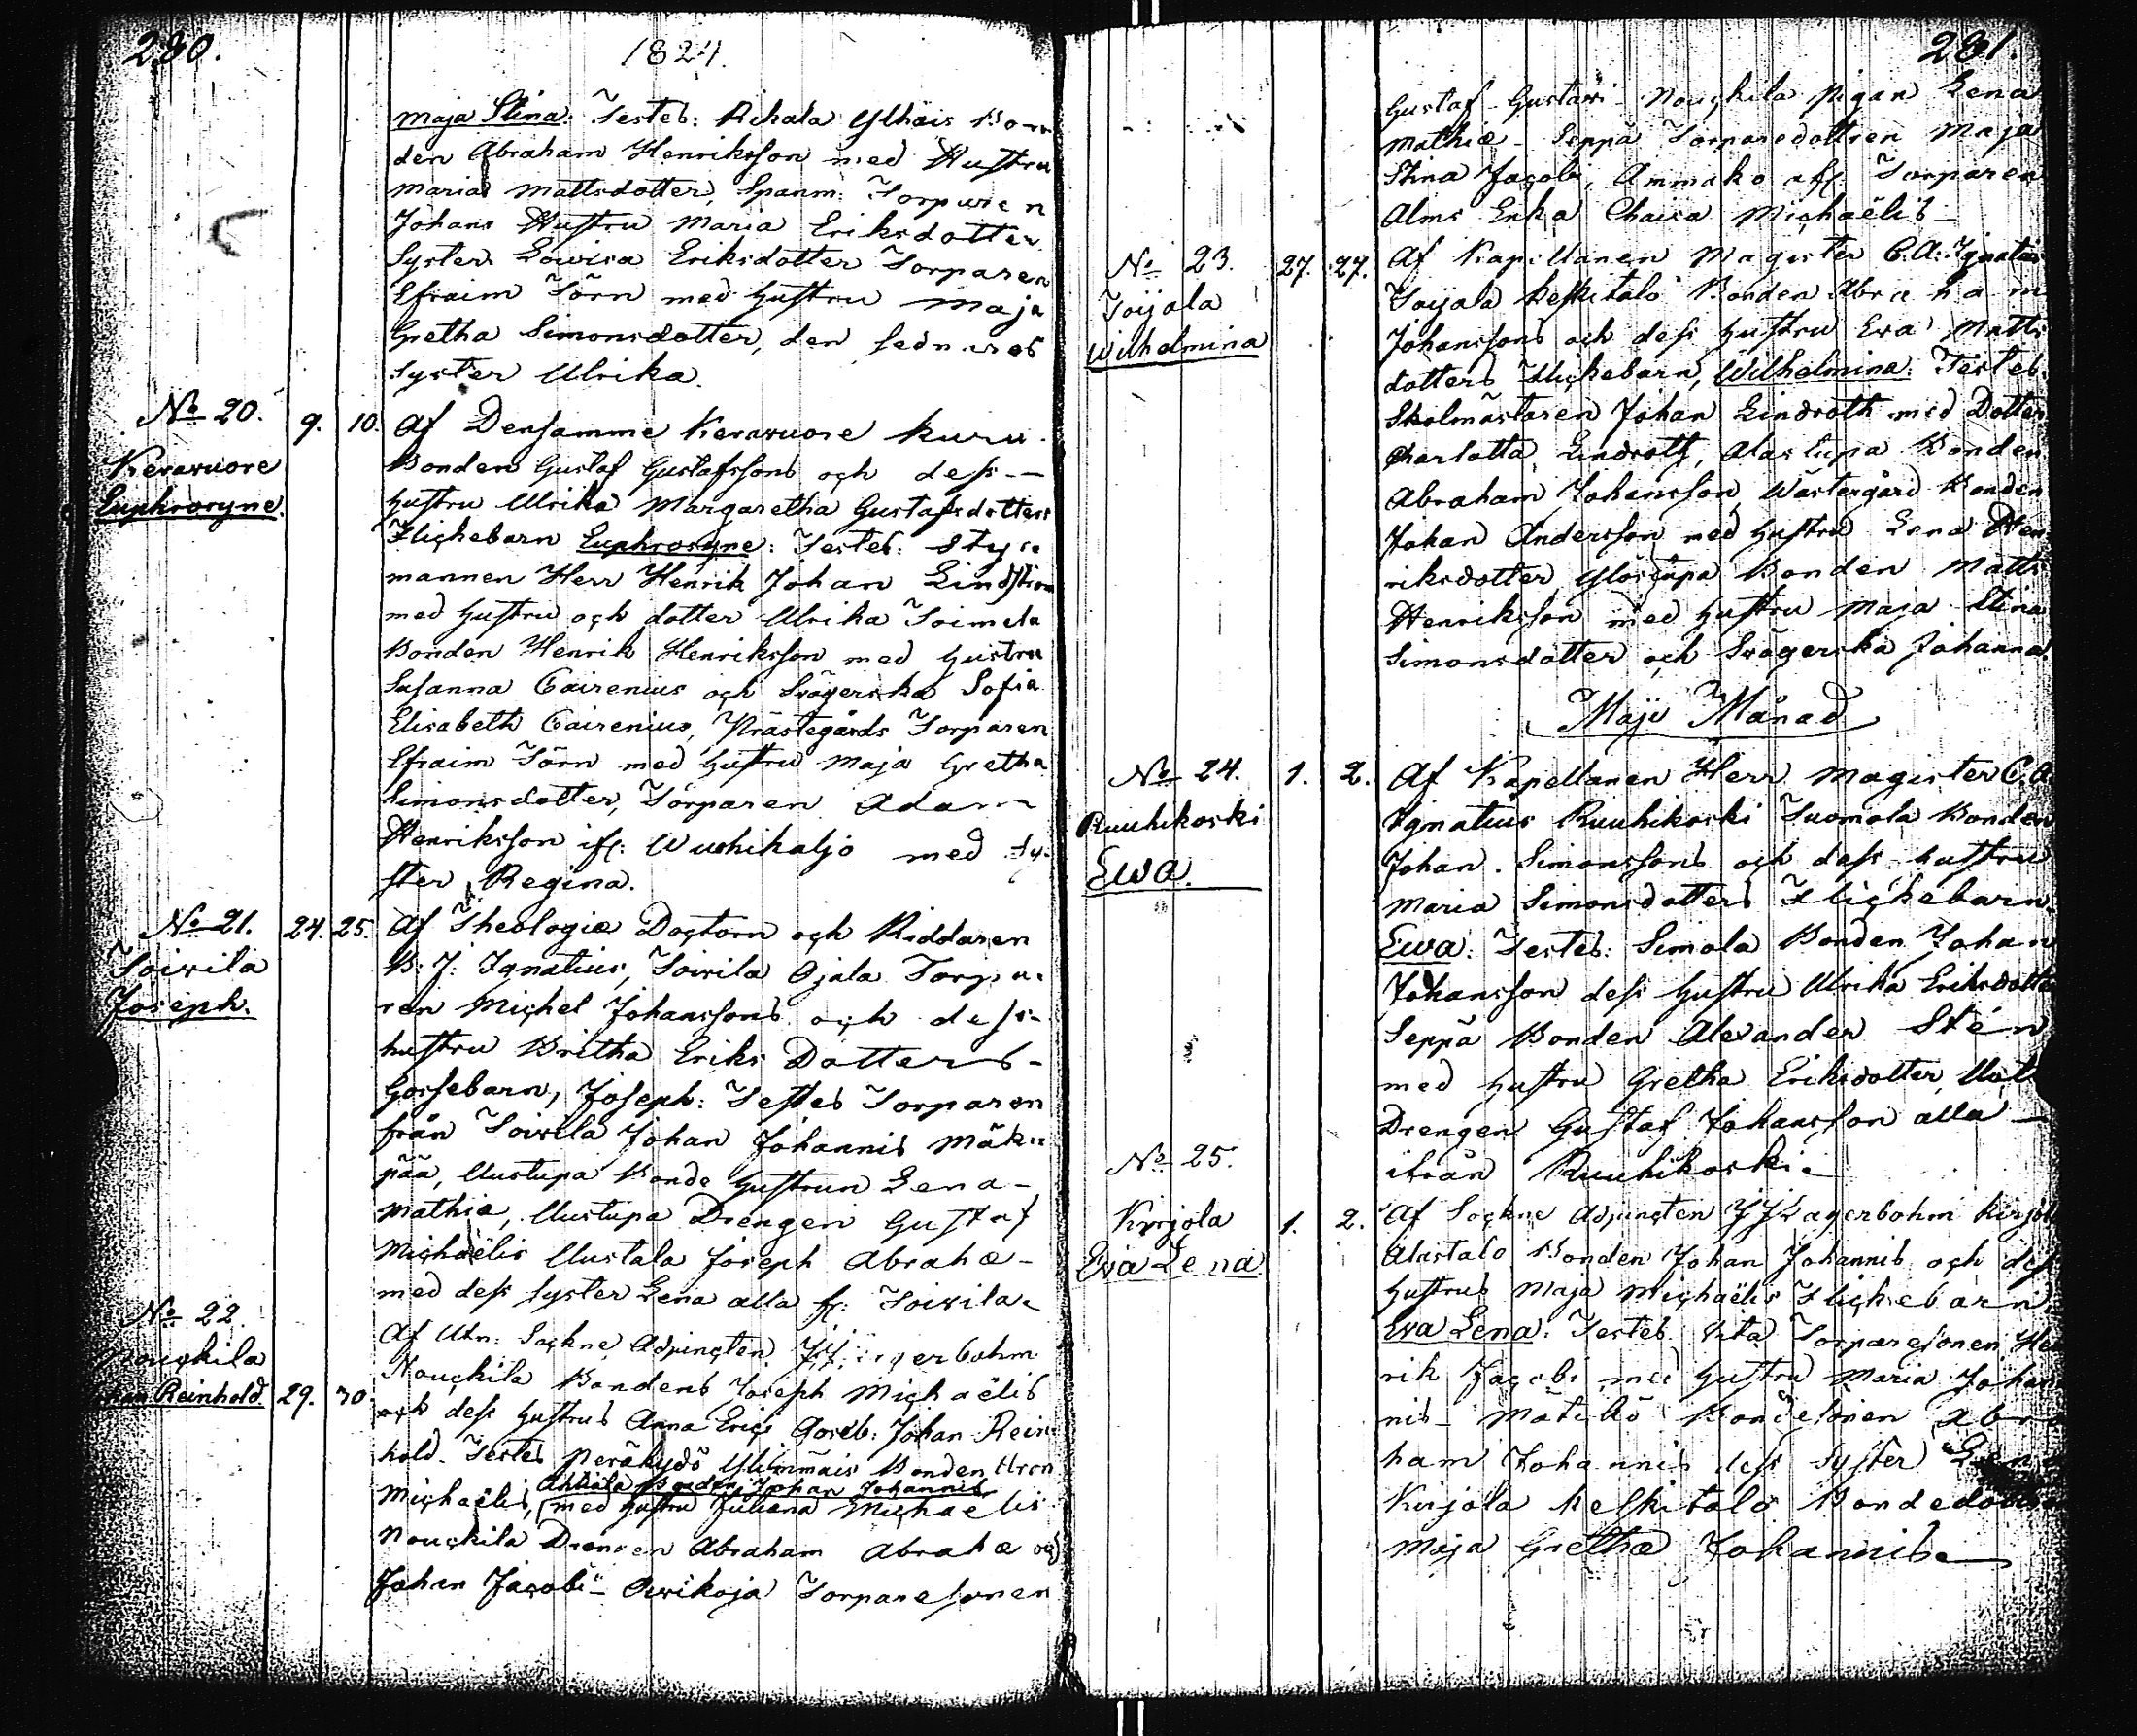 280.
1824.
Maja Stina: Testes: Rihala Ylhäis Bon
den Abraham Henriksson med Hustru
Maria Mattsdotter, Spanm: Torparen
Johans Hustru Maria Eriksdotter
Syster Lowisa Eriksdotter Torparen
Efraim Törn med hustru Maja
Gretha Simonsdotter, den sednares
Syster Ulrika.
No 20.
Kerawuore
Euphrosyne.
9. 10.
Af Densamme Kerawuore Kuru
Bonden Gustaf Gustafssons och dess
hustru Ulrika Margaretha Gustafsdotters
Flickebarn Euphrosyne: Testes: Styr
mannen Herr Henrik Johan Lindström
med hustru och dotter Ulrika Soimela
Bonden Henrik Henriksson med hustru
Susanna Cairenius och Swägerska Sofia
Elisabeth Cairenius, Prästegårds Torparen
Efraim Törn med hustru Maja Gretha
Simonsdotter, Torparen Adam
Henriksson ifr: Wuohikaljo med Sy-
ster Regina.
No 21.
Toiwila
Joseph.
24. 25.
Af Theologiæ Doctorn och Riddaren
B: J: Ignatius, Toiwila Ojala Torpa-
ren Michel Johanssons och dess
hustru Britha Eriks Dotters
Gossebarn, Joseph: Testes Torparen
från Toiwila Johan Johannis Mäki
pää, Uustupa Bonde hustrun Lena
Mathiæ, Uustupa Drengen Gustaf
Michaëlis Uustala Joseph Abrahæ
med dess Syster Lena alla fr: Toiwila
No 22.
Nouckila
Johan Reinhold.
29. 30.
Af Utn: Sockne Adjuncten J J: Lagerbohm
Nouckila Bondens Joseph Michaëlis
och dess hustrus Anna Erici Gosseb: Johan Rein-
hold. Testes Peräkydö Yliminäis Bonden Aron
Ahlsala Bonden Johan Johannis
Michaëlis, med hustru Juliana Michaelis
Nouckila Drengen Abraham Abrahæ och
Johan Jacobi Owikoja Torparesonen
281.
Gustaf Gustavi Nouckila pigan Lena
Mathiæ Seppä Torparedottren Maja
Stina Jacobi, Ammakoafl: Torparen
Alms Enka Chaisa Michaëlis
No 23.
Toijala
Wilhelmina
27. 27.
Af Kapellanen Magister C: A: Ignatius
Toijala Keskitalo Bonden Abraham
Johanssons och dess hustru Ewa Matts
dotters Flickebarn, Wilhelmina: Testes:
Skolmästaren Johan Lindroth med Dotter
Charlotta Lindroth, Alastupa Bonden
Abraham Johansson, Wästergård Bonden
Johan Andersson med hustru Lena Hen
riksdotter Ylöstupa Bonden Matts
Henriksson med hustru Maja Stina
Simonsdotter och Swägerska Johanna.
Maji Månad
No 24.
Ruuhikoski
Ewa.
1. 2.
Af Kapellanen Herr Magister C. A
Ignatius Ruuhikoski Tuomola Bonden
Johan Simonssons och dess hustru
Maria Simonsdotters Flickebarn
Ewa: Testes: Simola Bonden Johan
Johansson dess hustru Ulrika Eriksdotter
Seppä Bonden Alexander Stén
med hustru Gretha Eriksdotter,
Drengen Gustaf Johansson alla
ifrån Ruuhikoski
No 25.
Kirjola
Eva Lena
1. 2.
Af Sockne Adjuncten J J Lagerbohm Kirjola
Alastalo Bonden Johan Johannis och dess
hustrus Maja Michaëlis Flickebarn
Eva Lena: Testes. Torparesonen Hen
rik Jacobi med hustru Maria Johan
nis Bondesonen Abra
ham Johannis dess Syster Lena
Kirjola Keskitalo Bondedotter
Maja Gretha Johannis